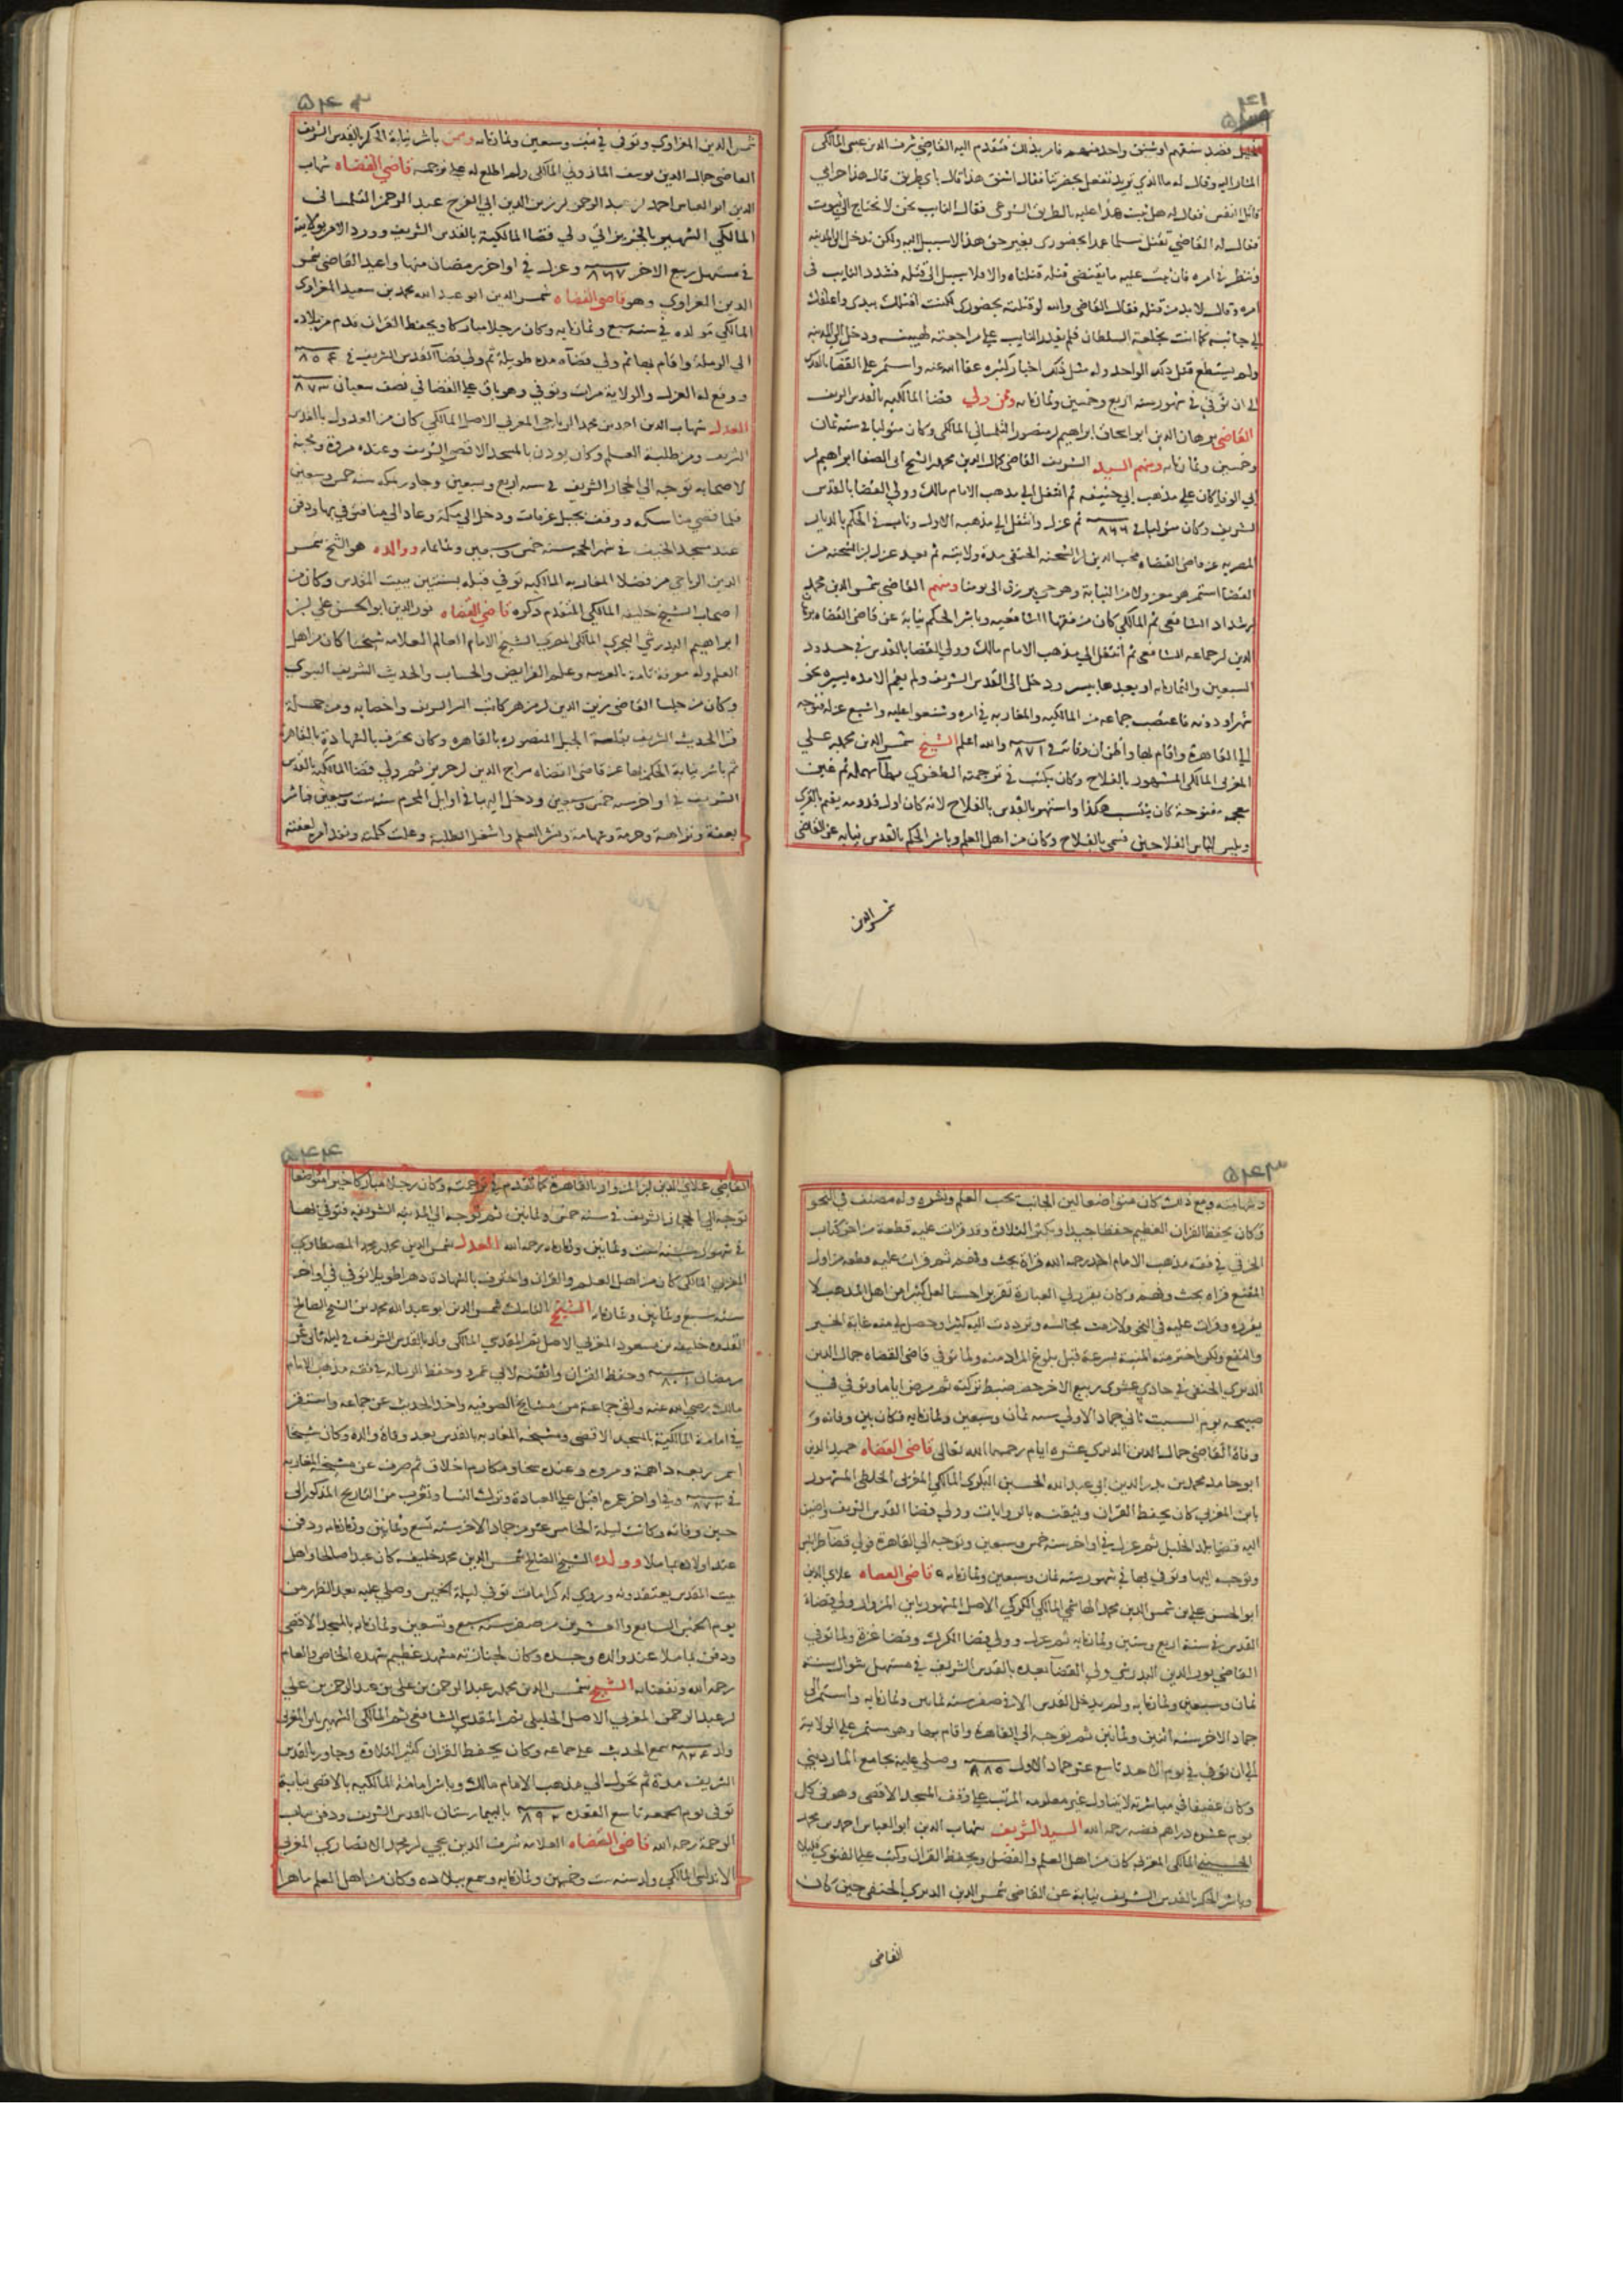 ٥٤١
الخليل فقصد شنقهم او شنق واحد منهم فامر بذلك فتقدم اليه القاضي شرف الدين عيسى المالكي
المشار اليه وقال له ما الذي تريد تفعل بحضرتنا فقال اشنق هذا قال باي طريق قال هذا حرامي
قاتل النفس فقال له هل ثبت هذا عليه بالطريق الشرعي فقال النايب نحن لا نحتاج الى ثبوت
فقال له القاضي تقتل مسلما عمدا بحضوري بغير حق هذا لا سبيل اليه ولكن ندخل الى المدينة
وننظر في امره فان ثبت عليه ما يقتضي قتله قتلناه والا فلا سبيل الى قتله فشدد النايب في
امره وقال لا بد من قتله فقال القاضي والله لو قتلته بحضوري لكنت اقتلك بيدي واعلقك
الى جانبه كما انت بخلعة السلطان فلم يقدر النايب على مراجعته لهيبته ودخل الى المدينة
ولم يستطع قتل ذلك الواحد وله مثل ذلك اخبار كثيرة عفا الله عنه واستمر على القضا بالقدس
الى ان توفي في شهور سنة اربع وخمسين وثمانمايه وممن ولي قضا المالكيه بالقدس الشريف
القاضي برهان الدين ابو اسحاق ابراهيم بن منصور التلمساني المالكي وكان متوليا في سنة ثمان
وخمسين وثمانمايه ومنهم السيد الشريف القاضي كمال الدين محمد بن الشيخ ابي الصفا ابراهيم بن
ابي الوفا كان على مذهب ابي حنيفه ثم انتقل الى مذهب الامام مالك وولي القضا بالقدس
الشريف وكان متوليا في ٨٦٦ ثم عزل وانتقل الى مذهبه الاول وناب في الحكم بالديار
المصريه عن قاضي القضاه محب الدين ابن الشحنه الحنفي مدة ولايته ثم بعد عزل ابن الشحنه من
القضا استمر هو معزولا من النيابة وهو حي يرزق الى يومنا ومنهم القاضي شمس الدين محمد
بن شداد الشافعي ثم المالكي كان من فقها الشافعيه وباشر الحكم نيابة عن قاضي القضاه برهان
الدين بن جماعه الشافعي ثم انتقل الى مذهب الامام مالك وولي القضا بالقدس في حدود
السبعين والثمانمايه او بعدها بيسير ودخل الى القدس الشريف ولم يقم الا مده يسيره نحو
شهر او دونه فاعتصب جماعه من المالكيه والمغاربه في امره وشنعوا عليه واشيع عزله فتوجه
الى القاهرة واقام بها واظن ان وفاته في ٨٧١ والله اعلم الشيخ شمس الدين محمد بن علي
المغربي المالكي المشهور بالفلاح وكان يكتب في ترجمته الطغوي بطآ مهمله ثم غين
معجمه مفتوحة كان يكتب هكذا واشتهر بالقدس بالفلاح لانه كان اول قدومه يقيم بالقرى
ويلبس لباس الفلاحين فسمي بالفلاح وكان من اهل العلم وباشر الحكم بالقدس نيابة عن القاضي
شمس الدين
٥٤٢
شمس الدين المغراوي وتوفي في سنة وسبعين وثمانمايه وممن باشر نيابة الحكم بالقدس الشريف
القاضي جمال الدين يوسف المازوني المالكي ولم اطلع له على ترجمه قاضي القضاه شهاب
الدين ابو العباس احمد بن عبد الرحمن بن زين الدين ابي الفرج عبد الرحمن التلمساني
المالكي الشهير بالجزيراتي ولي قضا المالكية بالقدس الشريف وورد الامر بولايته
في مستهل ربيع الاخر ٨٦٧ وعزل في اواخر رمضان منها واعيد القاضي شمس
الدين المغراوي وهو قاضي القضاه شمس الدين ابو عبد الله محمد بن سعيد المغراوي
المالكي مولده في سنه سبع وثمانمايه وكان رجلا مباركا يحفظ القران قدم من بلاده
الى الرملة واقام بها ثم ولي قضاه مده طويلة ثم ولي قضا القدس الشريف في ٨٥٤
ووقع له العزل والولاية مرات وتوفي وهو باق على القضا في نصف شعبان ٨٧٣
المعدل شهاب الدين احمد بن محمد الرياحي المغربي الاصل المالكي كان من العدول بالقدس
الشريف ومن طلبة العلم وكان يوذن بالمسجد الاقصى الشريف وعنده مروة ومحبة
لاصحابه توجه الى الحجاز الشريف في سنه اربع وسبعين وجاور بمكه سنه خمس وسبعين
فلما قضى مناسكه ووقف بجبل عرفات ودخل الى مكة وعاد الى منا توفي بها ودفن
عند مسجد الخيف في شهر الحجه سنه خمس وسبعين وثمانمايه ووالده هو الشيخ شمس
الدين الرياحي من فضلا المغاربه المالكيه توفي قبله بسنتين ببيت المقدس وكان من
اصحاب الشيخ خليفه المالكي المتقدم ذكره قاضي القضاه نور الدين ابو الحسن علي بن
ابراهيم البدرشي البحري المالكي المصري الشيخ الامام العالم العلامه شيخنا كان من اهل
العلم وله معرفة تامة بالعربيه وعلم الفرايض والحساب والحديث الشريف النبوي
وكان من جلسا القاضي زين الدين بن مزهر كاتب السر الشريف واخصايه ومن جملة
قرا الحديث الشريف بقلعة الجبل المنصوره بالقاهره وكان يحترف بالشهادة بالقاهره
ثم باشر نيابة الحكم بها عن قاضي القضاه سراج الدين بن حريز ثم ولي قضا المالكيه بالقدس
الشريف في اواخر سنه خمس وسبعين ودخل اليها في اوايل المحرم سنه ست وسبعين فباشر
بعفة ونزاهة وحرمة وشهامة ونشر العلم واشغل الطلبة وعلت كلمته ونفذ امره لعفته
٥٤٣
وشهامته ومع ذلك كان متواضعا لين الجانب يحب العلم ونشره وله مصنف في النحو
وكان يحفظ القران العظيم حفظا جيدا ويكثر التلاوة وقد قرات عليه قطعة من اخر كتاب
الخرقي في فقه مذهب الامام احمد رحمه الله قراة بحث وفهم ثم قرات عليه قطعه من اول
المقنع قراه بحث وفهم وكان يقرر لي العبارة تقريرا حسنا لعل كثيرا من اهل المذهب لا
يقرره وقرات عليه في النحو ولازمت مجالسه وترددت اليه كثيرا وحصل لي منه غاية الخير
والنفع ولكن اخترمته المنية بسرعة قبل بلوغ المراد منه ولما توفي قاضي القضاه جمال الدين
الديري الحنفي في حادي عشري ربيع الاخر حضر ضبط تركته ثم مرض اياما وتوفي في
صبيحه يوم السبت ثاني جماد الاولى سنه ثمان وسبعين وثمانمايه فكان بين وفاته و
وفاة القاضي جمال الدين الديري عشره ايام رحمهما الله تعالى قاضي القضاه حميد الدين
ابو حامد محمد بن بدر الدين ابي عبد الله الحسين البكري المالكي المغربي الخليلي المشهور
بابن المغربي كان يحفظ القران ويتقنه بالروايات وولي قضا القدس الشريف واضيف
اليه قضا بلد الخليل ثم عزل في اواخر سنه خمس وسبعين وتوجه الى القاهرة فولي قضا طرابلس
وتوجه اليها وتوفي بها في شهور سنه ثمان وسبعين وثمانمايه قاضي القضاه علاي الدين
ابو الحسن علي بن شمس الدين محمد الهاشمي المالكي الكركي الاصل المشهور بابن المزوار ولي قضاة
القدس في سنة اربع وستين وثمانمايه ثم عزل وولي قضا الكرك وقضا غزة ولما توفي
القاضي نور الدين البدرشي ولي القضا بعده بالقدس الشريف في مستهل شوال سنة
ثمان وسبعين وثمانمايه ولم يدخل القدس الا في صفر سنه ثمانين وثمانمايه واستمر الى
جماد الاخر سنه اثنين وثمانين ثم توجه الى القاهرة واقام بها وهو مستمر على الولاية
الى ان توفي في يوم الاحد تاسع عشر جماد الاول ٨٨٥ وصلي عليه بجامع المارديني
وكان عفيفا في مباشرته لا يتناول غير معلومه المرتب على وقف المسجد الاقصى وهو في كل
يوم عشره دراهم فضه رحمه الله السيد الشريف شهاب الدين ابو العباس احمد بن محمد
الحسيني المالكي المغربي كان من اهل العلم والفضل ويحفظ القران وكتب على الفتوى قليلا
وباشر الحكم بالقدس الشريف نيابة عن القاضي شمس الدين الديري الحنفي حين كان
القاضي
٥٤٤
القاضي علاي الدين ابن المزوار بالقاهرة كما تقدم في ترجمته وكان رجلا مباركا خيرا متواضعا
توجه الى الحجاز الشريف في سنه خمس وثمانين ثم توجه الى المدينه الشريفه فتوفي بها
في شهور سنه ست وثمانين وثمانمايه رحمه الله المعدل شمس الدين محمد بن محمد
المغربي المالكي كان من اهل العلم والقران واحترف بالشهادة دهرا طويلا توفي في اواخر
سنه سبع وثمانين وثمانمايه الشيخ الناسك شمس الدين ابو عبد الله محمد بن الشيخ الصالح
القدوه خليفه بن مسعود المغربي الاصل ثم المقدسي المالكي ولد بالقدس الشريف في ليلة ثاني عشر
رمضان ٨٠١ وحفظ القران واتقنه لابي عمرو وحفظ الرساله في فقه مذهب الامام
مالك رضي الله عنه ولقي جماعة من مشايخ الصوفيه واخذ الحديث عن جماعه واستقر
في امامة المالكية بالمسجد الاقصى ومشيخه المغاربه بالقدس بعد وفاة والده وكان شيخا
وعنده سخا ومكارم اخلاق ثم صرف عن مشيخة المغاربه
في ٨٧٣ وفي اواخر عمره اقبل على العبادة وترك النسا وتغرب من التاريخ المذكور الى
حين وفاته وكانت ليلة الخامس عشر من جماد الاخر سنه تسع وثمانين وثمانمايه ودفن
عند اولاده بماملا وولده الشيخ الصالح شمس الدين محمد خليفه كان عبدا صالحا واهل
بيت المقدس يعتقدونه وروي له كرامات توفي ليلة الخميس وصلي عليه بعد الظهر من
يوم الخميس السابع والعشرين من صفر سنه سبع وتسعين وثمانمايه بالمسجد الاقصى
ودفن بماملا عند والده وجده وكان لجنازته مشهد عظيم شهده الخاص والعام
رحمه الله ونفعنا به الشيخ شمس الدين محمد بن عبد الرحمن بن علي بن عبد الرحمن بن علي
بن عبد الرحمن المغربي الاصل الخليلي ثم المقدسي الشافعي ثم المالكي الشهير بابن المغربي
ولد ٨٢٤ سمع الحديث على جماعه وكان يحفظ القران كثير التلاوة وجاور بالقدس
الشريف مدة ثم تحول الى مذهب الامام مالك وباشر امامة المالكيه بالاقصى نيابة
توفي يوم الجمعه تاسع القعده ٨٩٢ بالبيمارستان بالقدس الشريف ودفن بباب
الرحمة رحمه الله قاضي القضاه العلامه شرف الدين يحيى بن محمد الانصاري المغربي
الاندلسي المالكي ولد سنه ست وخمسين وثمانمايه وسمع ببلاده وكان من اهل العلم ماهرا